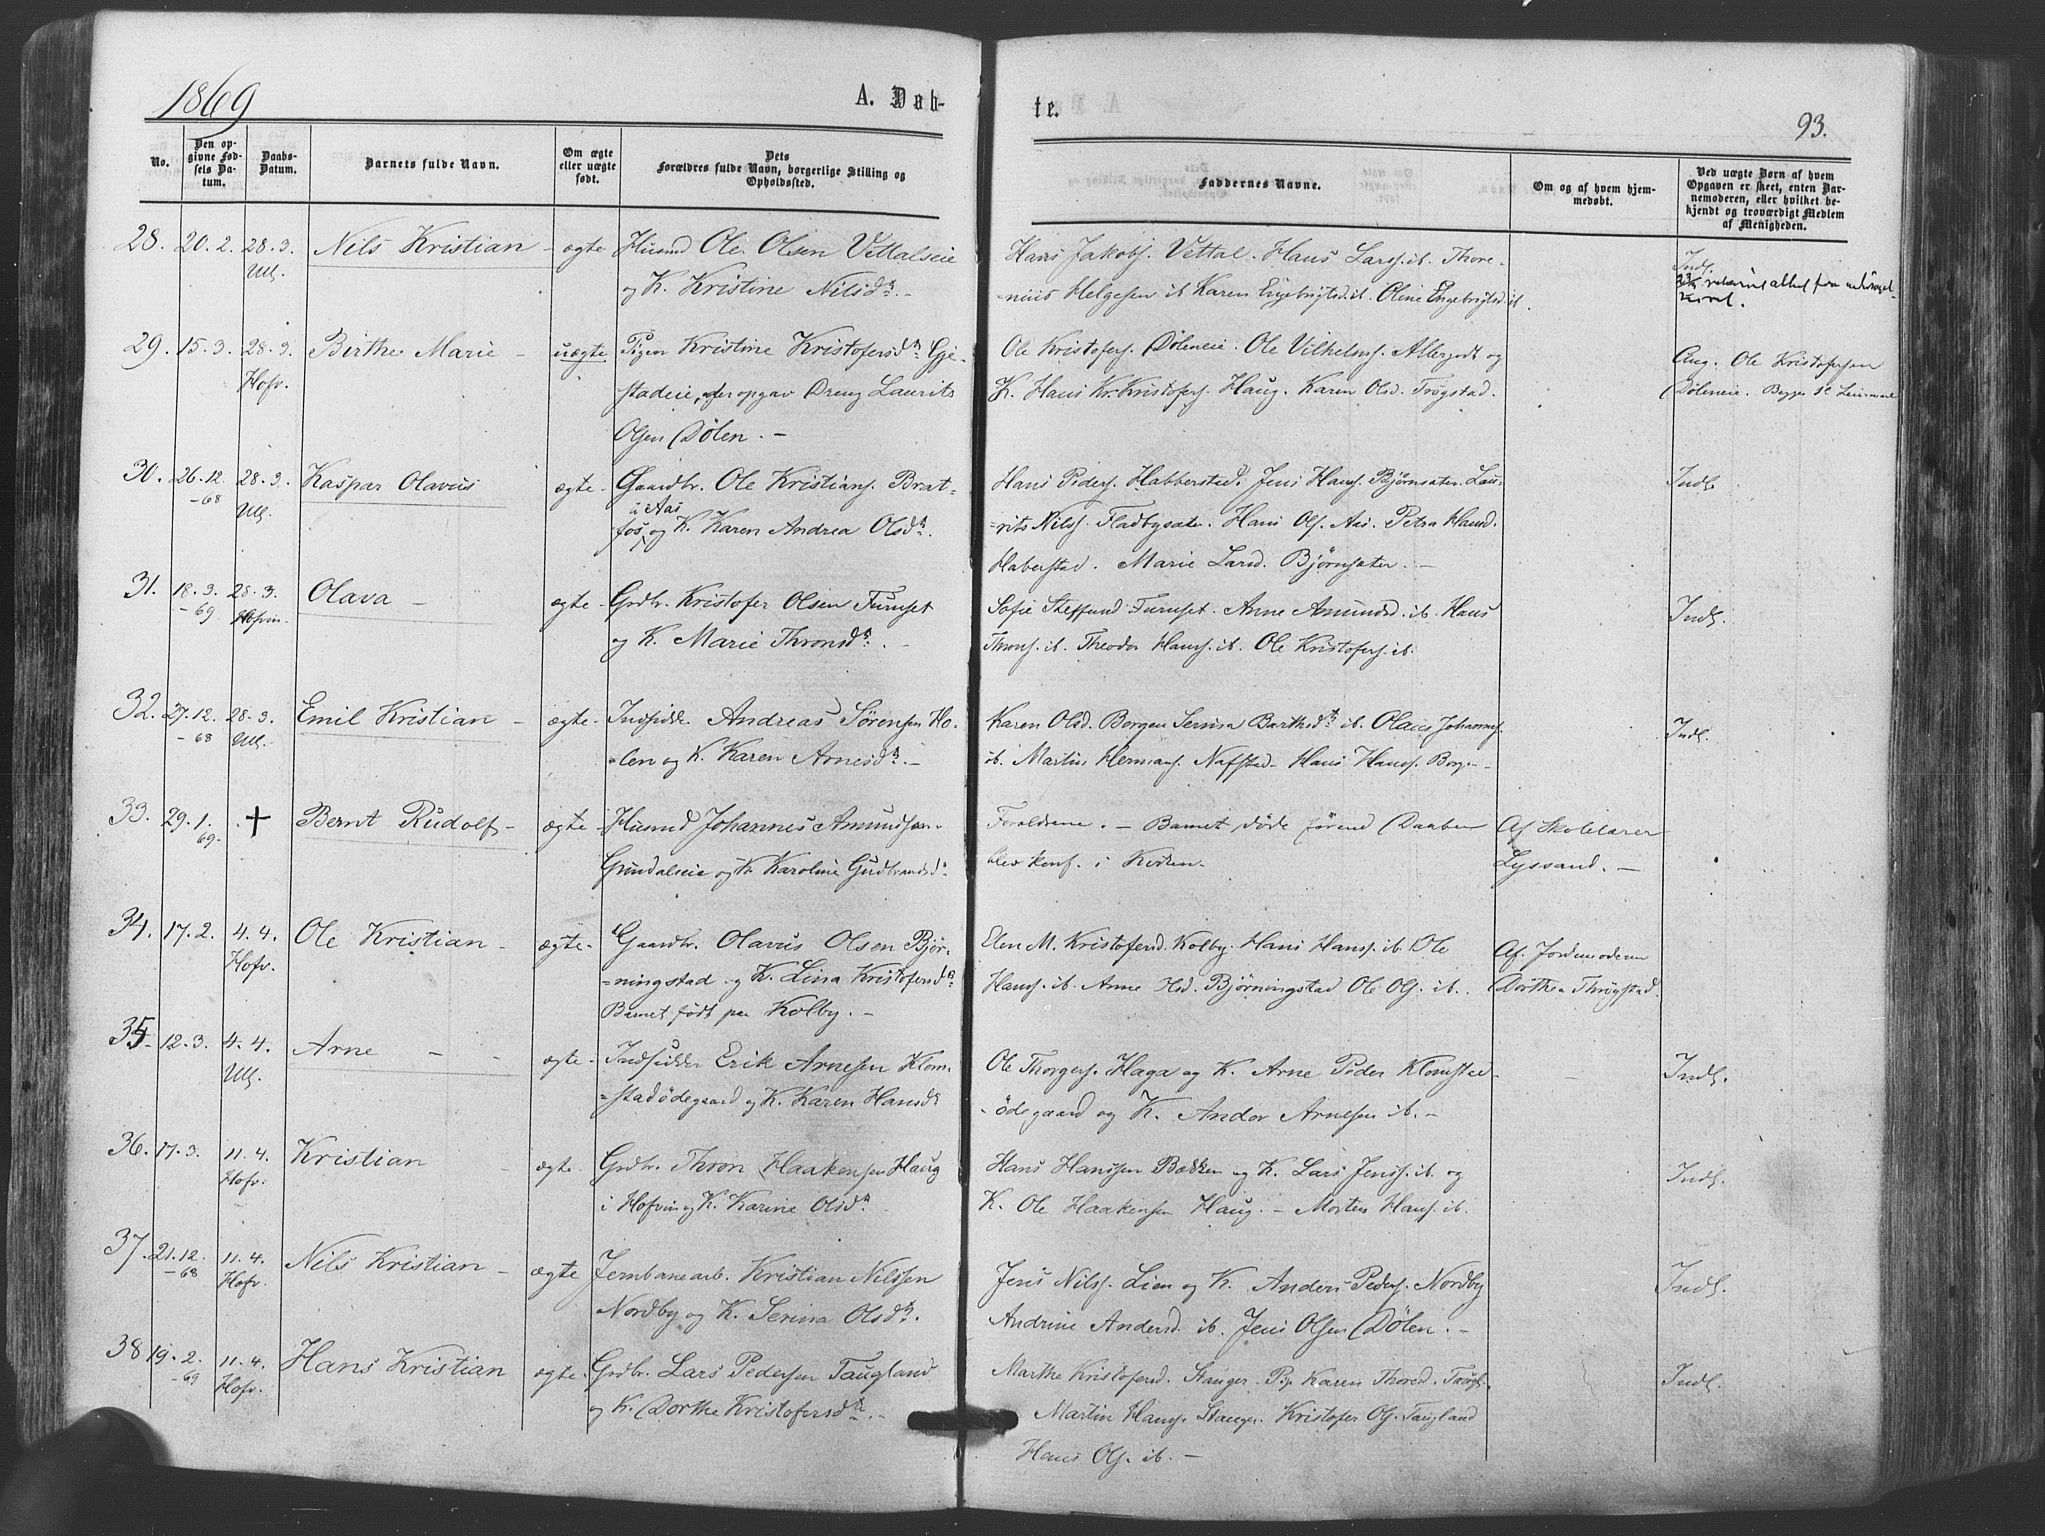 1869
A. Døb-
te.
93.
No.
Den op-
givne Fød-
sels Da-
tum.
Daabs-
Datum.
Barnets fulde Navn.
Om ægte
eller uægte
født.
Dets
Forældres fulde Navn, borgerlige Stilling og
Opholdssted.
Faddernes Navne.
Om og af hvem hjem-
medøbt.
Ved uægte Børn af hvem
Opgaven er skeet, enten Bar-
nemoderen, eller hvilket be-
kjendt og troværdigt Medlem
af Menigheden.
28. 20. 2. 28. 3. Nils Kristian - ægte Husmd Ole Olsen Vettalseie
Ull. og K. Kristine Nilsd. -
Hans Jakobs. Vettal. Hans Lars. ib. Thore-
=nius Helgesen ib Karen Engebrigtsd. ib. Oline Engebrigtsd. ib.
Indt.
29. 15. 3. 28. 3. Birthe Marie - uægte Pigen Kristine Kristofersdtr Gje-
Hofv. stadeie, der opgav Dreng Laurits
Olsen Dølen. -
Ole Kristofers. Døleneie. Ole Vilhelms. Allergodt og
K. Hans Kr. Kristofers. Haug. Karen Olsd. Trøgstad.
Ang. Ole Kristofersen
Døleneie.
30. 26. 12. 28. 3. Kaspar Olavus ægte - Gaardbr. Ole Kristians. Brat=
-68 Ull. i Aas
fos og K. Karen Andrea Olsd.
Hans Peders. Habberstad. Jens Hans. Bjørnsater. Lau-
=rits Nilss. Fladbysater. Hans Ols. Aas. Petra Hansd.
Haberstad. Marie Larsd. Bjørnsater. -
Indt.
31. 18. 3. 28. 3. Olava - ægte - Grdbr. Kristofer Olsen Furuset
-69 Hofvin. og K. Marie Thronsd. -
Sofie Steffensd Furuset. Anne Amundsd. ib. Hans
Throns. ib. Theodor Hans. ib. Ole Kristofers. ib.
Indt.
32. 27. 12. 28. 3. Emil Kristian - ægte - Indsidder Andreas Sørensen Ho-
-68 Ull. =len og K. Karen Arnesd. -
Karen Olsd. Borgen Serina Barthsdtr ib. Olaus Johanness.
ib. Martin Hermans. Nafstad - Hans Hans. Borgen -
Indt.
33. 29. 1. + Bernt Rudolf - ægte - Husmd Johannes Amundsen.
69. Grindalseie og K Karoline Gudbrandsd.
Foraldrene. - Barnet døde førend Daaben
blev konf. i Kirken.
Af Skolelærer
Lyssand. -
34. 17. 2. 4. 4. Ole Kristian - ægte - Gaardbr. Olavus Olsen Bjør-
Hofv. =ningstad. og K. Lina Kristofersd.
Barnet født paa Kolby. -
Elen M. Kristofersd. Kolby. Hans Hans. ib. Ole
Hans. ib. Anne Olsd. Bjørningstad Ole Ols. ib.
Af. Jordemoderen
Dorthea Thrøgstad.
35. 12. 3. 4. 4. Arne - - ægte - Indsidder Erik Arnesen Klom-
Ull. =stadødegaard og K. Karen Hansd
Ole Thorgers. Haga og K. Arne Peder Klomstad-
- ødegaard og K. Andor Arnesen ib. -
Indt.
36. 17. 3. 11. 4. Kristian - ægte - Grdbr. Thron Haakensen Haug
Hofv. i Hofvin og K. Karine Olsd.
Hans Hanssen Bækken og K. Lars Jens. ib. og
K. Ole Haakensen Haug. - Morten Hans. ib.
Indt.
37. 21. 12. 11. 4. Nils Kristian - ægte Jernbanearb. Kristian Nilssen
-68 Hofv. Nordby og K. Serina Olsd.
Jens Nilss. Lien og K. Anders Peders. Nordby
Andrine Andersd. ib. Jens Olsen Dølen. -
Indt.
38 19. 2. 11. 4. Hans Kristian ægte. Grdbr. Lars Pedersen Taugland
-69 Hofv. og K. Dorthe Kristofersd. -
Marthe Kristofersd. Stanger. Pig. Karen Thoresd. Taugl.
Martin Hans. Stanger. Kristofer Ols. Taugland
Hans Ols. ib. -
Indt.